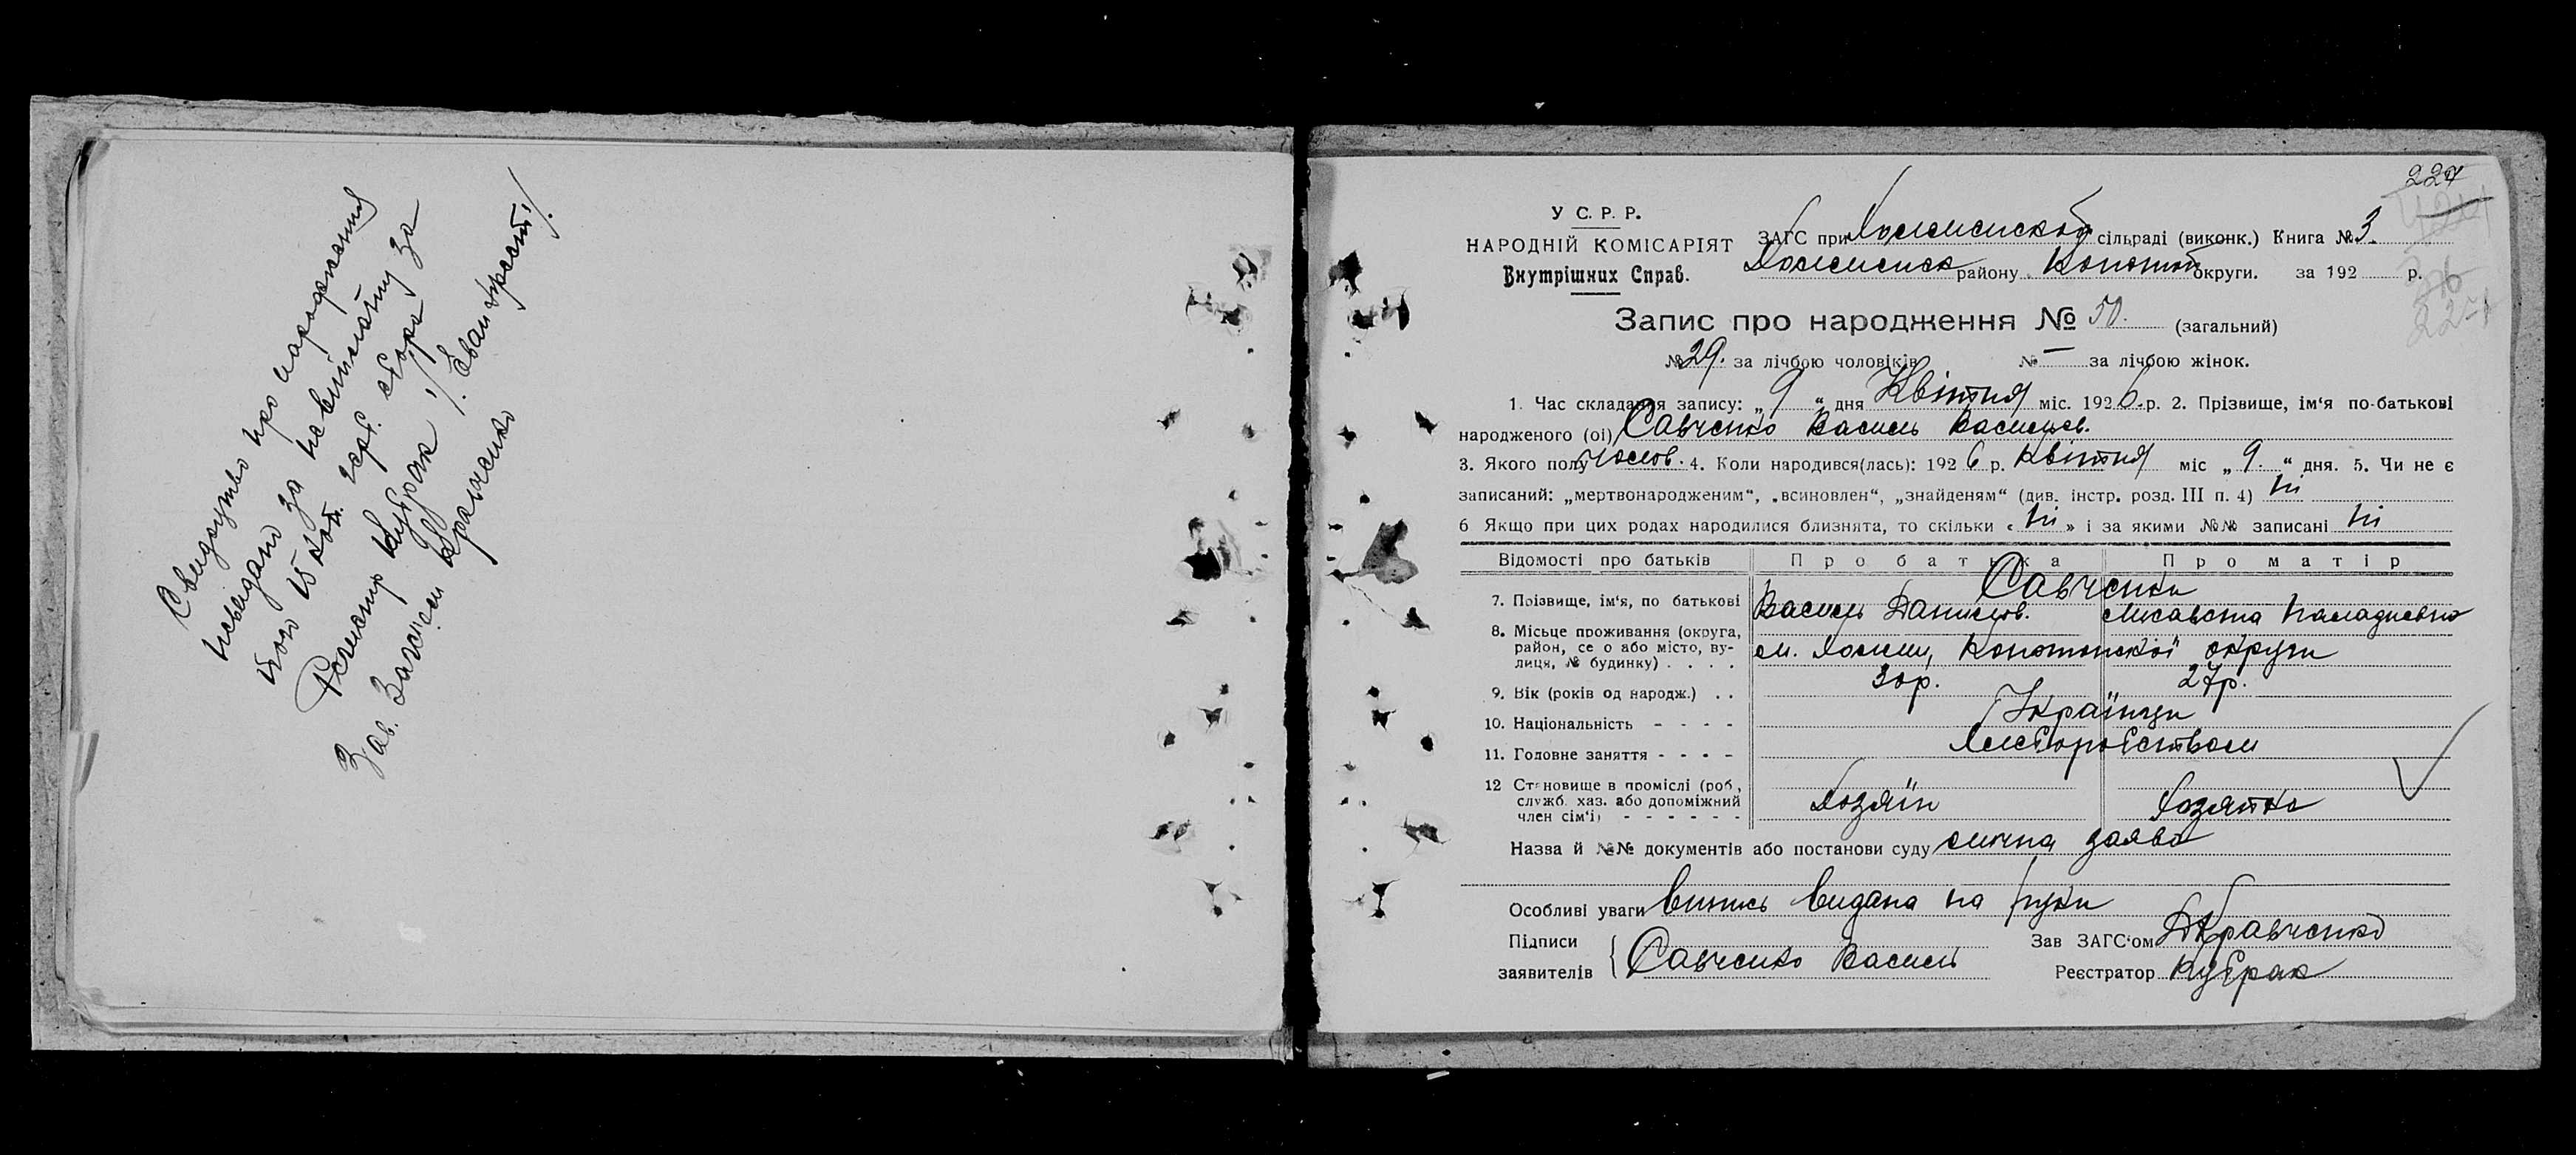 Свидоцтво про народження
невидано за
15 коп. герб. сбора
Реєстр Кубрак
Зав. Загсом Кравченко
227
У С. Р. Р.
НАРОДНІЙ КОМІСАРІЯТ
Внутрішних Справ.
ЗАГС при Холменской сільраді (виконк.) Книга № 3.
Холменск району Конотоп округи. за 192 р.
Запис про народження № 50. (загальний)
№ 29. за лічбою чоловіків № — за лічбою жінок.
1. Час складання запису: „ 9 “ дня Квітня міс. 1926.р. 2. Прізвище, ім‘я по-батькові
народженого (ої) Савченко Василь Васильов.
3. Якого полу Чолов. 4. Коли народився(лась): 1926 р. Квітня міс „ 9. “ дня. 5. Чи не є
записаний: „мертвонародженим“, „всиновлен“, „знайденям“ (див. інстр. розд. III п. 4) Ні
6 Якщо при цих родах народилися близнята, то скільки « Ні » і за якими №№ записані Ні
Відомості про батьків Про батька Про матір
Савченки
7. Прізвище, ім‘я, по батькові Василь Данилов.
8. Місьце проживання (округа, район, се о або місто, вулиця, № будинку) . . . . м. Холми, Конотопської округи
9. Вік (років од народж.) . . 30р. 27р.
10. Національність - - - - Українци
11. Головне заняття - - - - Хлеборобством
12 Становище в проміслі (роб,
служб. хаз. або допоміжний
член сім‘ї) - - - - - - Хозяїн Хозяйка
Назва й №№ документів або постанови суду слична заява
Особливі уваги Випись видана на руки
Підписи
заявителів { Савченко Василь
Зав ЗАГС‘ом Кравченко
Реєстратор Кубрак